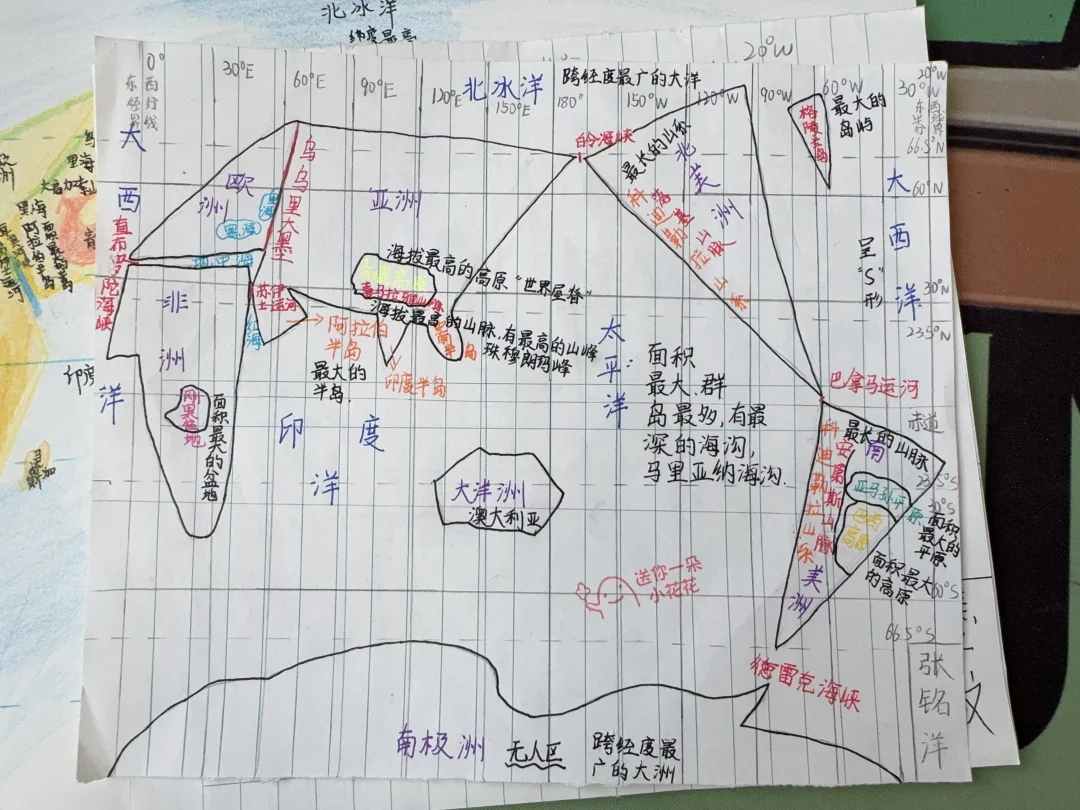 北冰洋
纬度最高
20°W
0°
30°E
60°E
90°E
120°E
北冰洋
150°E
跨经度最广的大洋
180°
150°W
120°W
90°W
60°W
30°W
20°W
66.5°N
60°N
30°N
23.5°N
大
西
洋
欧
洲
黑海
里海
地中海
直布罗陀海峡
乌乌里大黑
亚洲
白令海峡
最长的山系
北
美
洲
科迪勒拉山系
落基山脉
格陵兰岛
最大的
岛屿
大
西
洋
呈
"S"
形
海拔最高的高原"世界屋脊"
喜马拉雅山脉
海拔最高的山脉,有最高的山峰
珠穆朗玛峰
非
洲
红海
苏伊
士运河
阿拉伯
半岛
最大的
半岛
印度半岛
刚果盆地
面积最大的盆地
印
度
洋
大洋洲
澳大利亚
太
平
洋
面积
最大、群
岛最多,有最
深的海沟,
马里亚纳海沟.
巴拿马运河
赤道
最长的山脉
南
美
洲
科迪勒拉山系
安第斯山脉
亚马孙平原
面积
最大的
平原
巴西
高原
面积最大
的高原
23.5°S
30°S
60°S
66.5°S
送你一朵
小花花
德雷克海峡
南极洲
无人区
跨经度最
广的大洲
张
铭
洋